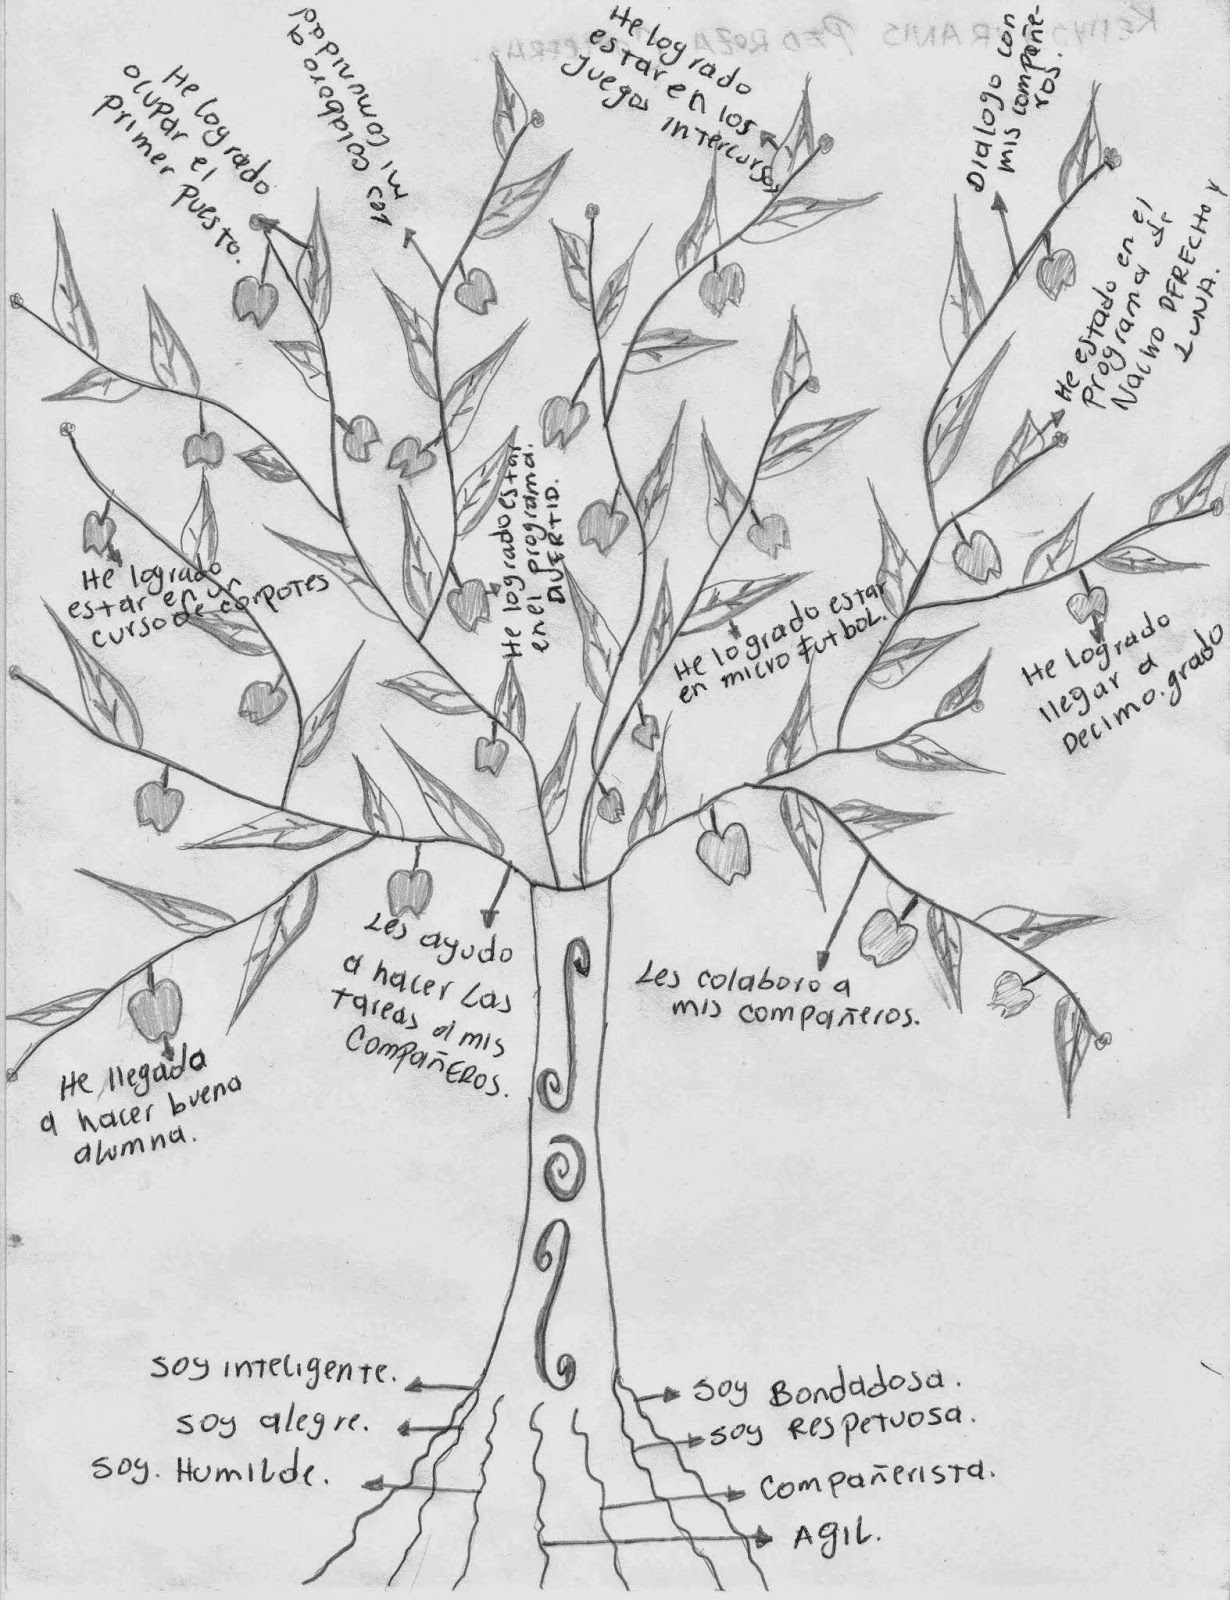 He logrado
ocupar el
primer puesto.
les colaboro a
mi comunidad
He logrado
estar en los
juegos
intercursos
Dialogo con
mis compañe-
ros.
He estado en el
Programa de
Nacho DERECHO y
LUNA.
PEDROZA
He logrado estar
en el programa.
DIVERTID.
He logrado
estar en un
curso de
He logrado estar
en micro futbol.
He logrado
llegar a
Decimo.grado
Les ayudo
a hacer las
tareas a mis
Compañeros.
Les colaboro a
mis compañeros.
He llegada
a hacer buena
alumna.
Soy inteligente.
soy alegre.
soy. Humilde.
soy Bondadosa.
soy Respetuosa.
Compañerista.
Agil.